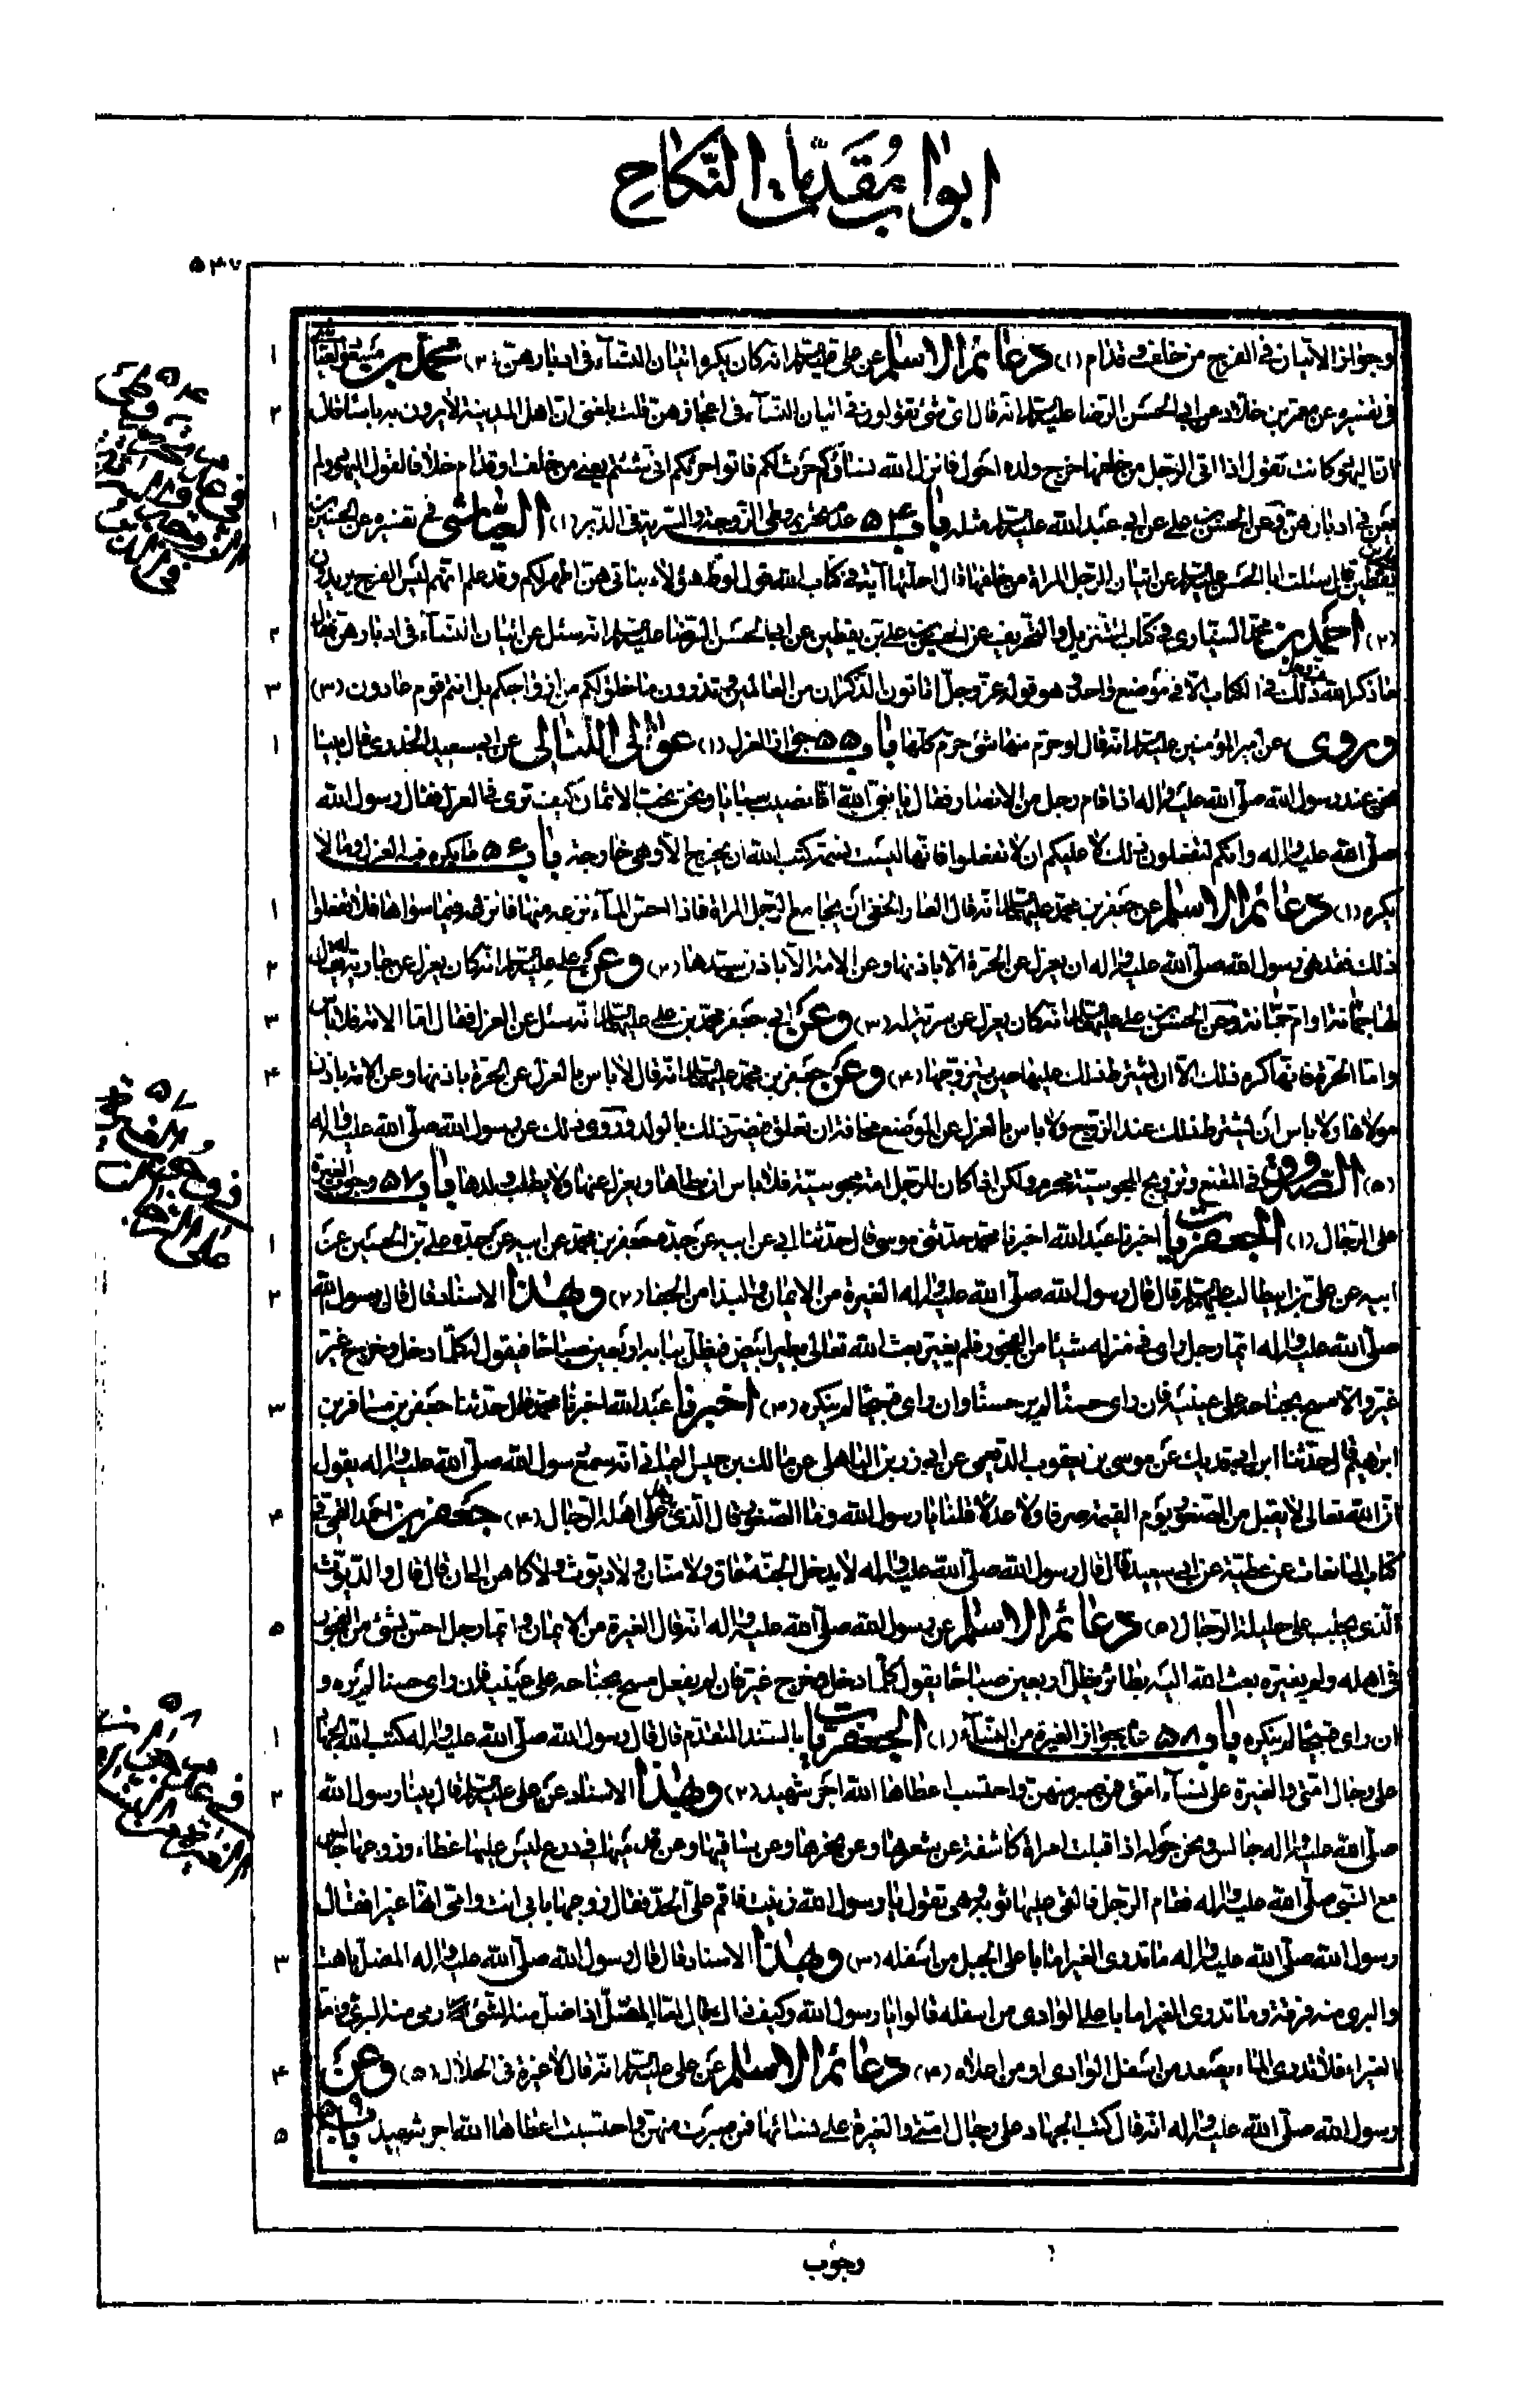 ابواب مقدمات النكاح
٥٤٧
وجواز الاتيان في الفرج من خلف وقدام (١) دعائم الاسلام عن علي عليه السلام انه كان يكره اتيان النساء في ادبارهن (٢) محمد بن مسعود العياشي
في تفسيره عن معمر بن خلاد عن ابي الحسن الرضا عليه السلام انه قال اي شئ يقولون في اتيان النساء في اعجازهن قلت بلغني ان اهل المدينة لا يرون به باسا قال
ان اليهود كانت تقول اذا اتى الرجل من خلفها خرج ولده احول فانزل الله نساؤكم حرث لكم فاتوا حرثكم انى شئتم يعني من خلف او قدام خلافا لقول اليهود ولم
يعن في ادبارهن وعن الحسن بن علي عن ابي عبد الله عليه السلام مثله باب ٥٤ عدم تحريم وطي الزوجة والسرية في الدبر (١) العياشي في تفسيره عن الحسين بن
علي بن يقطين قال سئلت ابا الحسن عليه السلام عن اتيان الرجل المراة من خلفها قال احلتها آية في كتاب الله قول لوط هؤلاء بناتي هن اطهر لكم وقد علم انهم ليس الفرج يريدون
(٢) احمد بن محمد السياري في كتاب التنزيل والتحريف عن الحسين بن علي بن يقطين عن ابي الحسن الرضا عليه السلام انه سئل عن اتيان النساء في ادبارهن فقال
ما ذكر الله عز وجل ذلك في الكتاب الا في موضع واحد وهو قوله عز وجل اتاتون الذكران من العالمين وتذرون ما خلق لكم من ازواجكم بل انتم قوم عادون (٣)
وروي عن امير المؤمنين عليه السلام انه قال لو حرم منها شئ حرم كلها باب ٥٥ جواز العزل (١) عوالي اللئالي عن ابي سعيد الخدري قال بينا
نحن عند رسول الله صلى الله عليه واله اذا قام رجل من الانصار فقال يا نبي الله انا نصيب سبايا ونحن نحب الاثمان كيف ترى في العزل فقال رسول الله
صلى الله عليه واله وانكم لتفعلون ذلك لا عليكم ان لا تفعلوا فانها ليست نسمة كتب الله ان يخرج الا وهي خارجة باب ٥٦ ما يكره فيه العزل وما لا
يكره (١) دعائم الاسلام عن جعفر بن محمد عليهما السلام انه قال العار الخفي ان يجامع الرجل المراة فاذا احس الماء نزعه منها فانزله فيما سواها فلا تفعلوا
ذلك فقد نهى رسول الله صلى الله عليه واله ان يعزل عن الحرة الا باذنها وعن الامة الا باذن سيدها (٢) وعن علي عليه السلام انه كان يعزل عن جارية له يقال
لها جمانة او ام جمانة وعن الحسن بن علي عليهما السلام انه كان يعزل عن سرية له (٣) وعن ابي جعفر محمد بن علي عليهما السلام انه سئل عن العزل فقال اما الامة فلا باس
واما الحرة فانها كره ذلك الا ان يشترط ذلك عليها حين يتزوجها (٤) وعن جعفر بن محمد عليهما السلام انه قال لا باس بالعزل عن الحرة باذنها وعن الامة باذن
مولاها ولا باس ان يشترط ذلك عند التزويج ولا باس بالعزل عن الموضع مخافة ان تعلق فيضر ذلك بالولد وروي ذلك عن رسول الله صلى الله عليه واله
(٥) الصدوق في المقنع وتزويج المجوسية محرم ولكن اذا كان للرجل امة مجوسية فلا باس ان يطاها ويعزل عنها ولا يطلب ولدها باب ٥٧ وجوب الغيرة
على الرجال (١) الجعفريات اخبرنا عبد الله اخبرنا محمد حدثني موسى قال حدثنا ابي عن ابيه عن جده جعفر بن محمد عن ابيه عن جده علي بن الحسين عن
ابيه عن علي بن ابيطالب عليهم السلام قال قال رسول الله صلى الله عليه واله الغيرة من الايمان والبذا من الجفا (٢) وبهذا الاسناد قال قال رسول الله
صلى الله عليه واله ايما رجل راى في منزله شيئا من الفجور فلم يغير بعث الله تعالى بطير ابيض فيظل ببابه اربعين صباحا فيقول له كلما دخل وخرج غير
غير والا مسح بجناحه على عينيه فان راى حسنا لم يره حسنا وان راى قبيحا لم ينكره (٣) اخبرنا عبد الله اخبرنا محمد قال حدثنا جعفر بن مسافر بن
ابراهيم قال حدثنا ابن ابي فديك عن موسى بن يعقوب الزمعي عن ابي رزين الباهلي عن مالك بن انه سمع رسول الله صلى الله عليه واله يقول
ان الله تعالى لا يقبل من الصقور يوم القيمة صرفا ولا عدلا قلنا يا رسول الله وما الصقور قال الذي يدخل على اهله الرجال (٤) جعفر بن احمد القمي في
كتاب المانعات عن عطية عن ابي سعيد قال قال رسول الله صلى الله عليه واله لا يدخل الجنة عاق ولا منان ولا ديوث ولا كاهن الى ان قال قال والديوث
الذي يجلب على حليلة الرجال (٥) دعائم الاسلام عن رسول الله صلى الله عليه واله انه قال الغيرة من الايمان وايما رجل احس بشئ من الفجور
في اهله ولم يغيره بعث الله اليه بطائر يظل اربعين صباحا يقول كلما دخل وخرج غير فان لم يفعل مسح بجناحه على عينيه فان راى حسنا لم يره و
ان راى قبيحا لم ينكره باب ٥٨ عدم جواز الغيرة من النساء (١) الجعفريات بالسند المتقدم قال قال رسول الله صلى الله عليه واله كتب الله الجهاد
على رجال امتي والغيرة على نساء امتي فمن صبر منهن واحتسب اعطاها الله اجر شهيد (٢) وبهذا الاسناد عن علي عليه السلام قال بينا رسول الله
صلى الله عليه واله جالس ونحن حوله اذا قبلت امراة كاشفة عن شعرها وعن نحرها وعن ساقيها وعن قدميها في درع ليس عليها غطاء وزوجها جالس
مع النبي صلى الله عليه واله فقام الرجل فالقى عليها ثوبه وهي تقول يا رسول الله زنيت فاقم علي الحد فقال زوجها بابي انت وامي انها غيرا فقال
رسول الله صلى الله عليه واله ما تدرى الغيرا ما باعلى الجبل من اسفله (٣) وبهذا الاسناد قال قال رسول الله صلى الله عليه واله المضل باهت
والبرى منه فرقة وما تدرى الغيرا ما باعلى الوادي من اسفله قالوا يا رسول الله وكيف ذاك قال اما المضل اذا ضل منه الشئ رمى منه البرئ واما
الغيراء فلا تدرى الماء يصعد من اسفل الوادي او من اعلاه (٤) دعائم الاسلام عن علي عليه السلام انه قال لا غيرة في الحلال (٥) وعن
رسول الله صلى الله عليه واله انه قال كتب الجهاد على رجال امتي والغيرة على نسائها فمن صبرت منهن واحتسبت اعطاها الله اجر شهيد باب ٥٩
وجوب